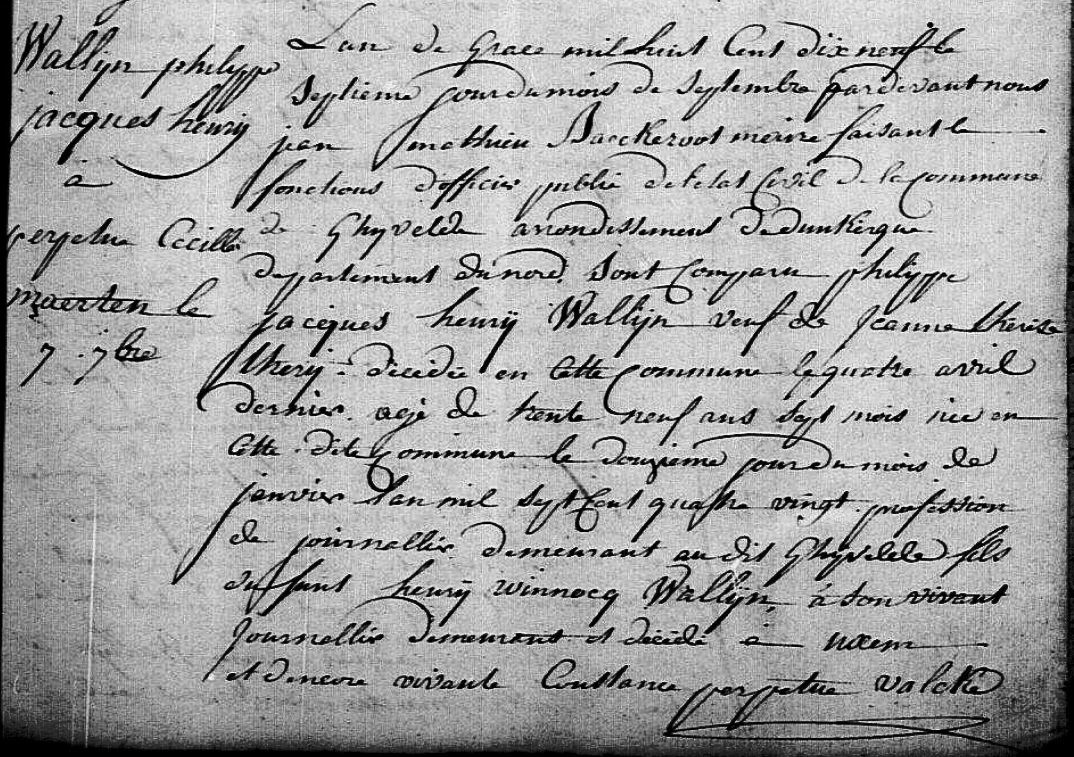 Wallijn philippe
jacques henrij
a
perpetue Cecille
maerten le
7. 7bre
L'an de Grace mil huit Cent dix neuf le
Septieme jour du mois de Septembre pardevant nous
jean mathieu Baeckeroot mairie faisant le
fonctions d'officier public de l'etat Civil de la commune
de Ghyvelde arrondissement de dunkerque
departement du nord, Sont Comparu philippe
jacques henrij Wallijn veuf de Jeanne thérèse
therij decidée en Cette Commune le quatre avril
dernier. agé de trente neuf ans Sept mois née en
Cette dite Commune le douzieme jour du mois de
janvier l'an mil Sept Cent quatre vingt profession
de journellier demeurant au dit Ghyvelde fils
du funt henrij winnocq Wallijn, à Son vivant
Journellier demeurant et décidé à uxem
et d'encore vivante Constance perpetue valcke